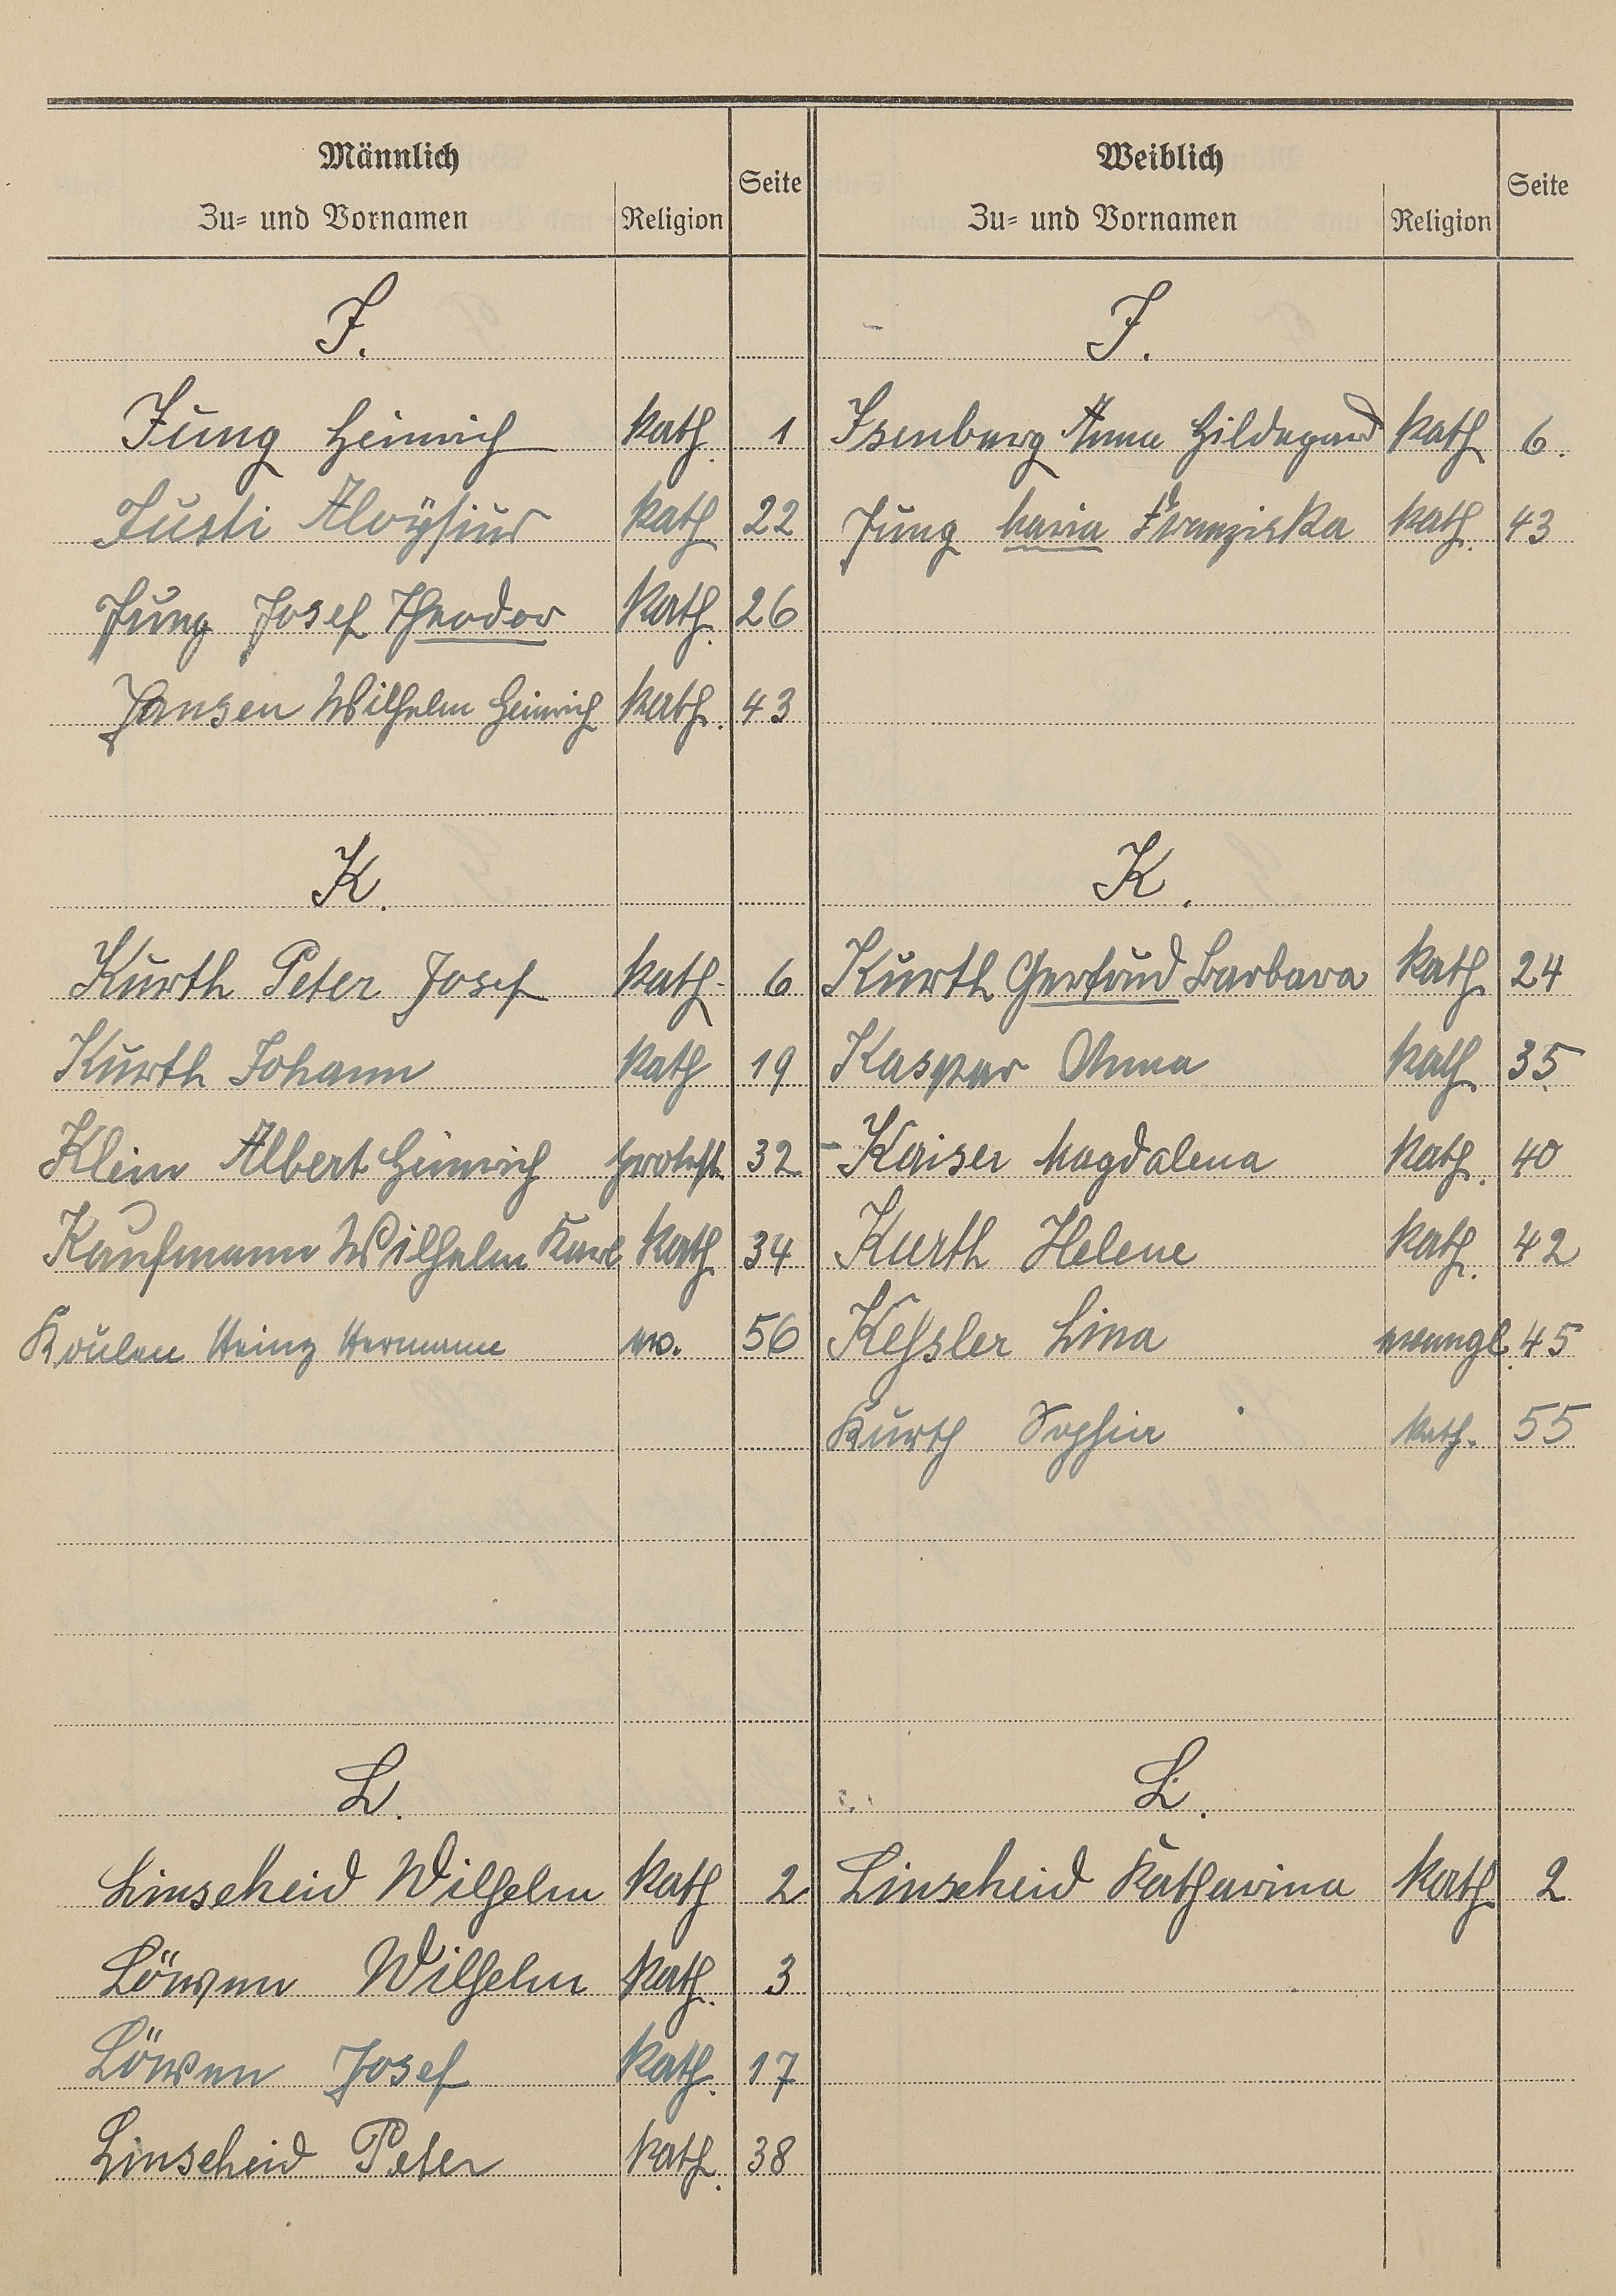 Männlich
Zu- und Vornamen Religion Seite
J.
Jung Heinrich kath. 1
Justi Aloÿsius kath. 22
Jung Josef Theodor kath. 26
Jansen Wilhelm Heinrich kath. 43
K.
Kurth Peter Josef kath. 6
Kurth Johann kath 19
Klein Albert Heinrich protest. 32
Kaufmann Wilhelm Karl kath. 34
Koulen Heinz Hermann ev. 56
L.
Linscheid Wilhelm kath 2
Löwen Wilhelm kath. 3
Löwen Josef kath. 17
Linscheid Peter kath. 38
Weiblich
Zu- und Vornamen Religion Seite
J.
Isenberg Anna Hildegard kath 6.
Jung Maria Franziska kath. 43
K.
Kurth Gertrud Barbara kath. 24
Kaspar Anna kath. 35.
Kaiser Magdalena kath. 40
Kurth Helene kath. 42
Keßsler Lina evangl. 45
Kurth Sophie kath. 55
L.
Linscheid Katharina kath. 2